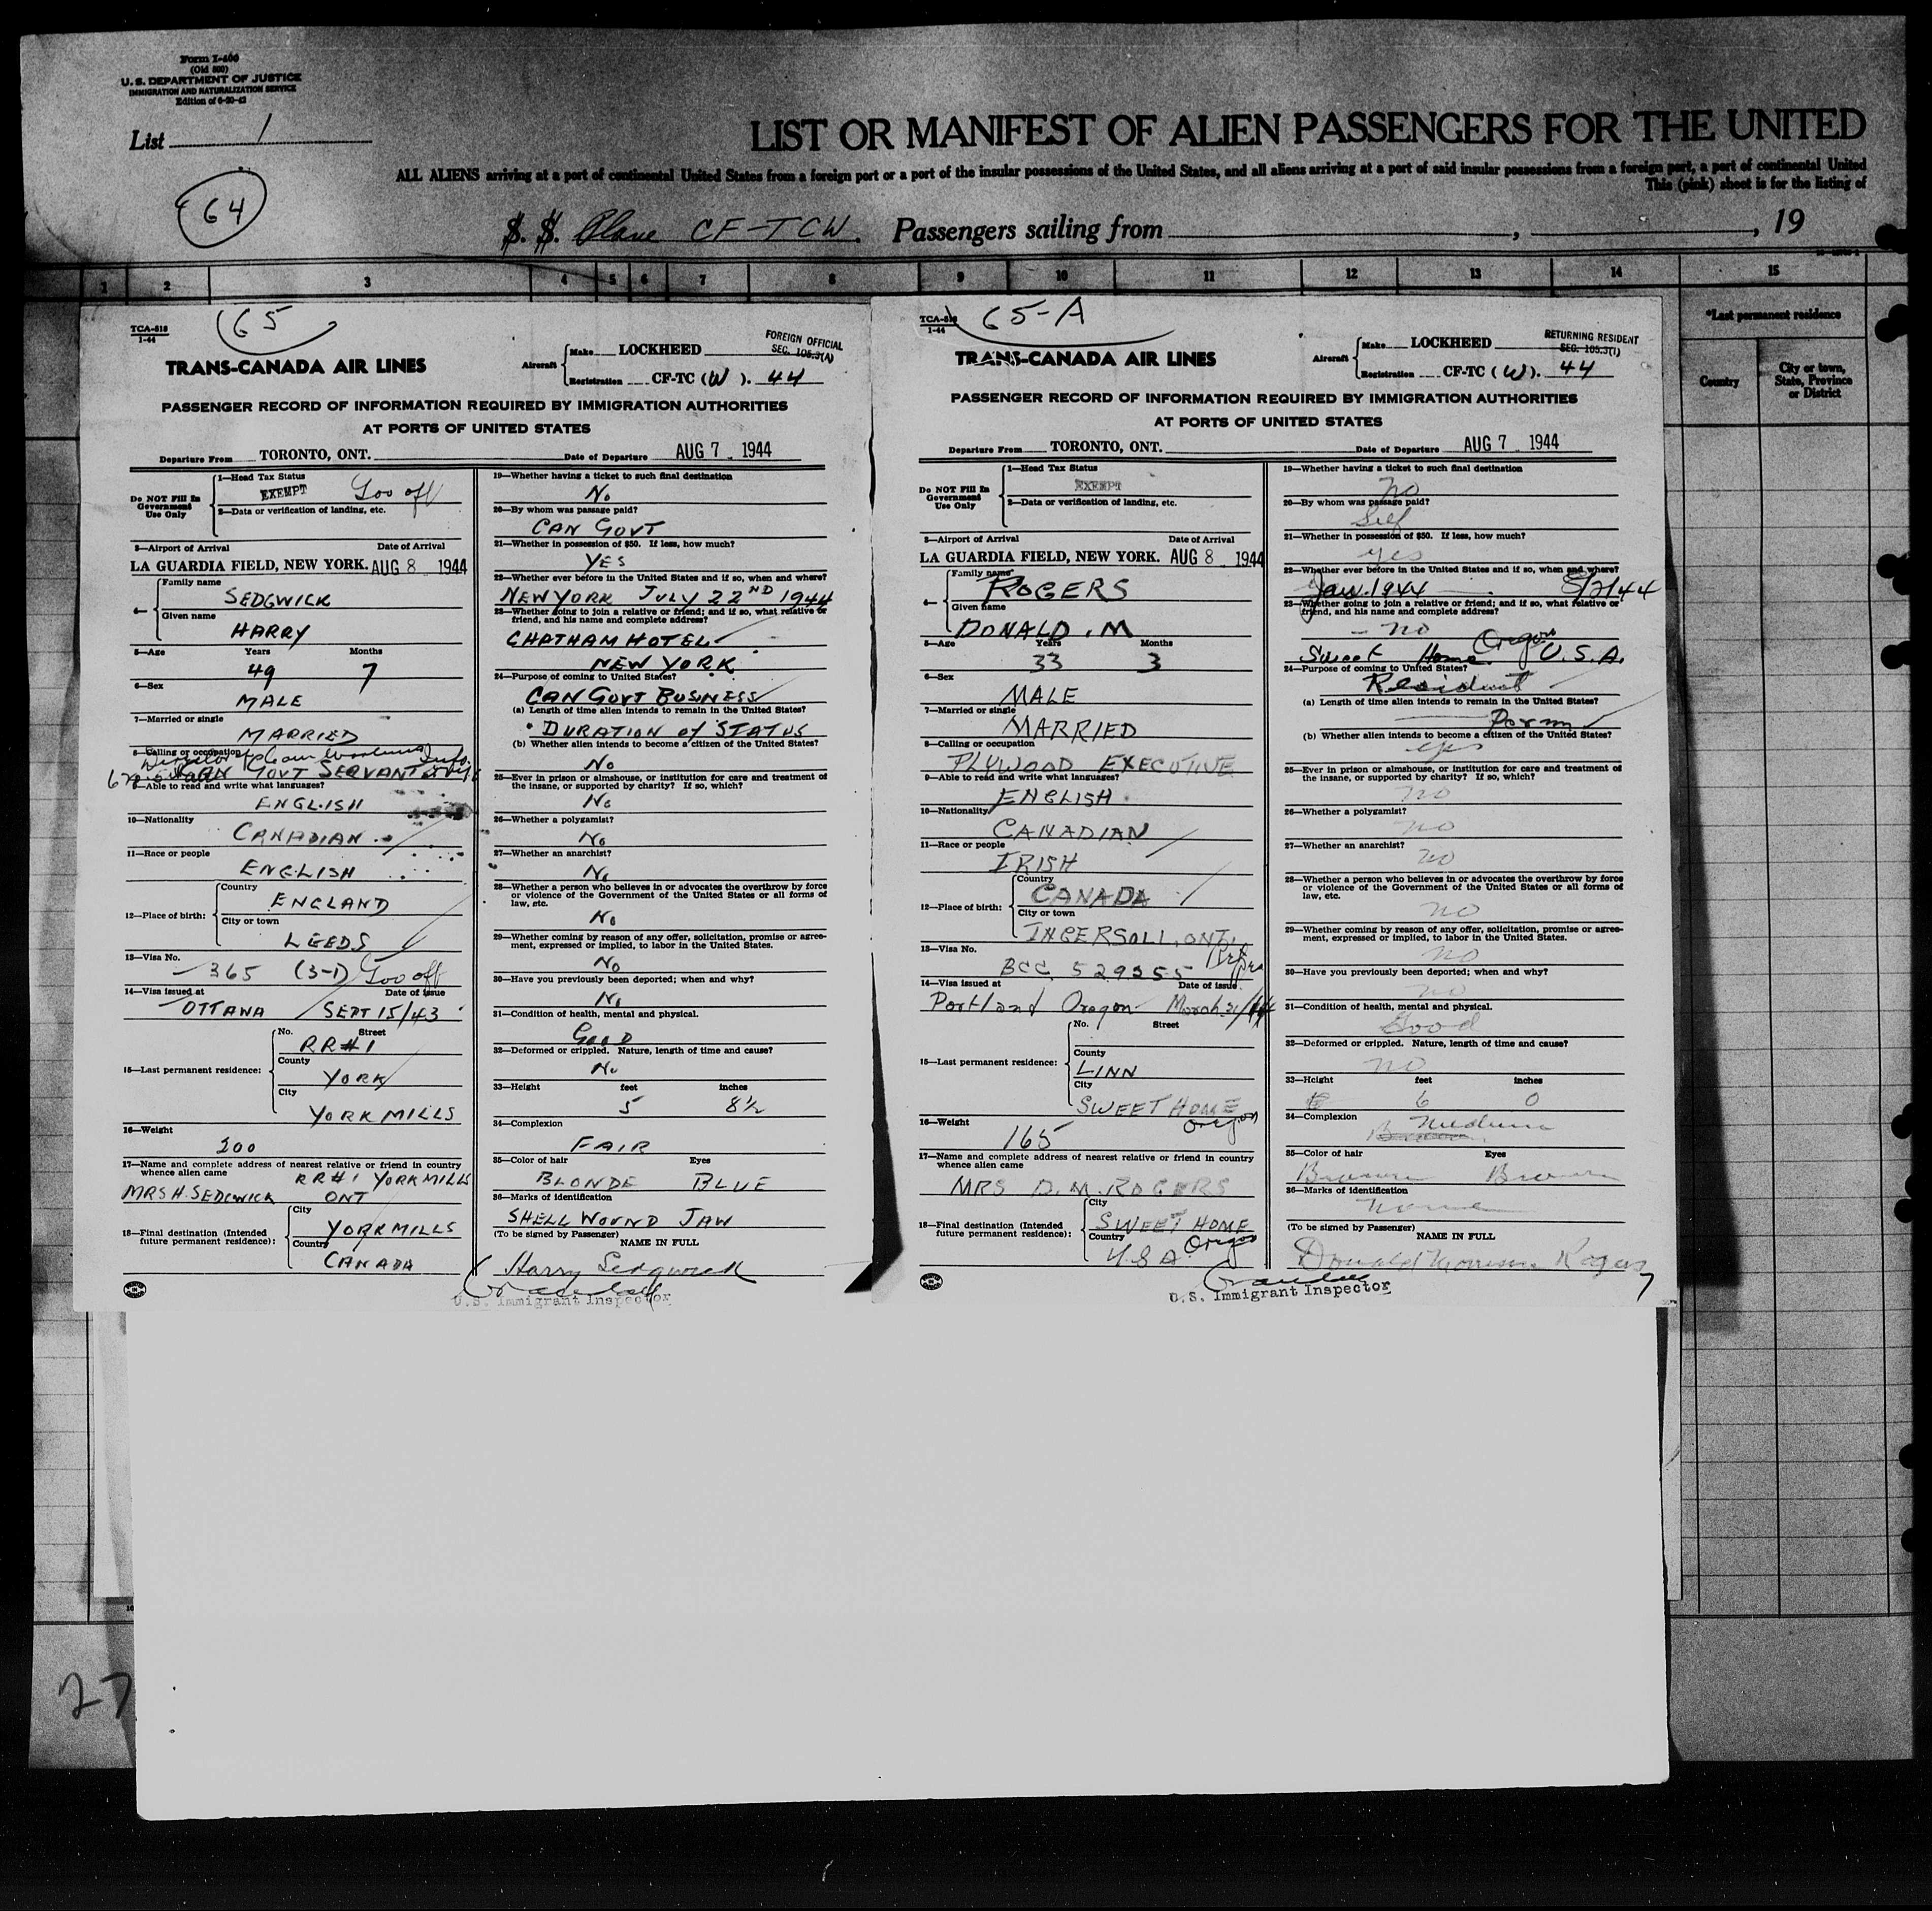 Form I-400
(Old 500)
U. S. DEPARTMENT OF JUSTICE
IMMIGRATION AND NATURALIZATION SERVICE
Edition of 6-20-42
List 1
64
LIST OR MANIFEST OF ALIEN PASSENGERS FOR THE UNITED
ALL ALIENS arriving at a port of continental United States from a foreign port or a port of the insular possessions of the United States, and all aliens arriving at a port of said insular possessions from a foreign port, a port of continental United
This (pink) sheet is for the listing of
S. S. Plane CF-TCW. Passengers sailing from , , 19
1 2 3 4 5 6 7 8 9 10 11 12 13 14 15
*Last permanent residence
Country
City or town, State, Province or District
65
TCA-518
1-44
FOREIGN OFFICIAL
SEC. 105.3(A)
TRANS-CANADA AIR LINES
Aircraft
Make LOCKHEED
Registration CF-TC (W). 44
PASSENGER RECORD OF INFORMATION REQUIRED BY IMMIGRATION AUTHORITIES
AT PORTS OF UNITED STATES
Departure From TORONTO, ONT. Date of Departure AUG 7 1944
Do NOT Fill In Government Use Only
1—Head Tax Status
EXEMPT Gov off
2—Data or verification of landing, etc.
3—Airport of Arrival Date of Arrival
LA GUARDIA FIELD, NEW YORK. AUG 8 1944
4— Family name
SEDGWICK
Given name
HARRY
5—Age Years Months
49 7
6—Sex
MALE
7—Married or single
MARRIED
8—Calling or occupation
Director
CAN GOVT SERVANT
9—Able to read and write what languages?
ENGLISH
10—Nationality
CANADIAN
11—Race or people
ENGLISH
12—Place of birth:
Country
ENGLAND
City or town
LEEDS
13—Visa No.
365 (3-1) Gov off
14—Visa issued at Date of issue
OTTAWA SEPT 15/43
15—Last permanent residence:
No. Street
RR#1
County
YORK
City
YORK MILLS
16—Weight
200
17—Name and complete address of nearest relative or friend in country
whence alien came
RR#1 YORK MILLS
MRS H. SEDGWICK ONT
18—Final destination (Intended
future permanent residence):
City
YORK MILLS
Country
CANADA
19—Whether having a ticket to such final destination
No
20—By whom was passage paid?
CAN GOVT
21—Whether in possession of $50. If less, how much?
YES
22—Whether ever before in the United States and if so, when and where?
NEW YORK JULY 22ND 1944
23—Whether going to join a relative or friend; and if so, what relative or
friend, and his name and complete address?
CHATHAM HOTEL
NEW YORK
24—Purpose of coming to United States?
CAN GOVT BUSINESS
(a) Length of time alien intends to remain in the United States?
DURATION of STATUS
(b) Whether alien intends to become a citizen of the United States?
No
25—Ever in prison or almshouse, or institution for care and treatment of
the insane, or supported by charity? If so, which?
No
26—Whether a polygamist?
No
27—Whether an anarchist?
No
28—Whether a person who believes in or advocates the overthrow by force
or violence of the Government of the United States or all forms of
law, etc.
No
29—Whether coming by reason of any offer, solicitation, promise or agree-
ment, expressed or implied, to labor in the United States.
No
30—Have you previously been deported; when and why?
No
31—Condition of health, mental and physical.
GOOD
32—Deformed or crippled. Nature, length of time and cause?
No
33—Height feet inches
5 8½
34—Complexion
FAIR
35—Color of hair Eyes
BLONDE BLUE
36—Marks of identification
SHELL WOUND JAW
(To be signed by Passenger)
NAME IN FULL
Harry Sedgwick
U.S. Immigrant Inspector
65-A
TCA-518
1-44
RETURNING RESIDENT
SEC. 105.3(1)
TRANS-CANADA AIR LINES
Aircraft
Make LOCKHEED
Registration CF-TC (W). 44
PASSENGER RECORD OF INFORMATION REQUIRED BY IMMIGRATION AUTHORITIES
AT PORTS OF UNITED STATES
Departure From TORONTO, ONT. Date of Departure AUG 7 1944
Do NOT Fill In Government Use Only
1—Head Tax Status
EXEMPT
2—Data or verification of landing, etc.
3—Airport of Arrival Date of Arrival
LA GUARDIA FIELD, NEW YORK. AUG 8 1944
4— Family name
ROGERS
Given name
DONALD . M
5—Age Years Months
33 3
6—Sex
MALE
7—Married or single
MARRIED
8—Calling or occupation
PLYWOOD EXECUTIVE
9—Able to read and write what languages?
ENGLISH
10—Nationality
CANADIAN
11—Race or people
IRISH
12—Place of birth:
Country
CANADA
City or town
INGERSOLL, ONT.
13—Visa No.
BCC 529255
14—Visa issued at Date of issue
Portland Oregon March 21/44
15—Last permanent residence:
No. Street
County
LINN
City
SWEET HOME
Oregon
16—Weight
165
17—Name and complete address of nearest relative or friend in country
whence alien came
MRS D. M. ROGERS
18—Final destination (Intended
future permanent residence):
City
SWEET HOME
Country
U.S.A. Oregon
19—Whether having a ticket to such final destination
no
20—By whom was passage paid?
Self
21—Whether in possession of $50. If less, how much?
yes
22—Whether ever before in the United States and if so, when and where?
Jan. 1944 — 8/2/44
23—Whether going to join a relative or friend; and if so, what relative or
friend, and his name and complete address?
- no
Sweet Home Oregon U.S.A.
24—Purpose of coming to United States?
Resident
(a) Length of time alien intends to remain in the United States?
Perm
(b) Whether alien intends to become a citizen of the United States?
yes
25—Ever in prison or almshouse, or institution for care and treatment of
the insane, or supported by charity? If so, which?
no
26—Whether a polygamist?
no
27—Whether an anarchist?
no
28—Whether a person who believes in or advocates the overthrow by force
or violence of the Government of the United States or all forms of
law, etc.
no
29—Whether coming by reason of any offer, solicitation, promise or agree-
ment, expressed or implied, to labor in the United States.
no
30—Have you previously been deported; when and why?
no
31—Condition of health, mental and physical.
Good
32—Deformed or crippled. Nature, length of time and cause?
no
33—Height feet inches
6 0
34—Complexion
Medium
35—Color of hair Eyes
Brown Brown
36—Marks of identification
None
(To be signed by Passenger)
NAME IN FULL
Donald Morrison Rogers
U.S. Immigrant Inspector
27